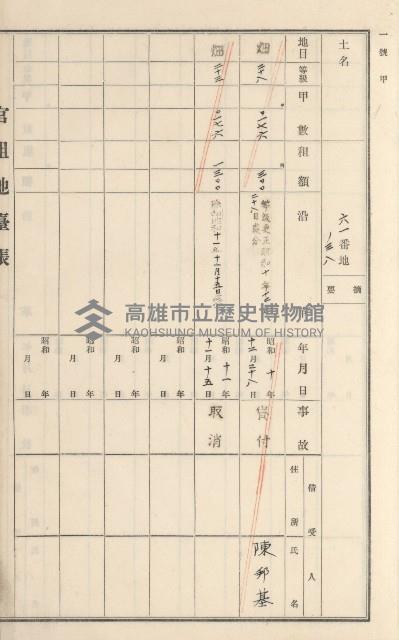 一號甲
土名
六一番地
一三八
摘要
地目
等級
甲數
租額
沿革
年月日
事故
借受人
住所
氏名
畑
二八
〇一七六
三〇〇
等級更正昭和十年十二月
二十八日
昭和十年
十二月二十八日
貸付
陳郑基
畑
〇一七六
一三〇〇
昭和十一年
十一月十五日
取消
昭和 年
月 日
昭和 年
月 日
昭和 年
月 日
昭和 年
月 日
官租地臺帳
高雄市立歷史博物館
KAOHSIUNG MUSEUM OF HISTORY